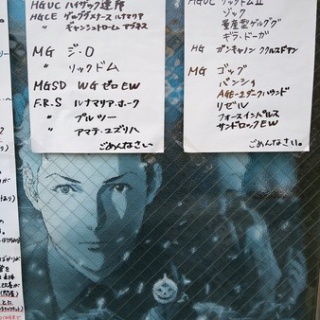 HGUC ハイザック連邦
HGCE ゲルググメナース ルナマリア
〃 ギャンシュトローム アグネス
MG ジ・O
〃 リックドム
MGSD WG ゼロ EW
F.R.S ルナマリア・ホーク
〃 プルツー
〃 アマテ・ユズリハ
ごめんなさい。
HGUC リックドムⅡ
ゾック
量産型ゲルググ
ギラ・ドーガ
HG ガンキャノン ククルスドアン
MG ゴッグ
バンシィ
AGE-2 ダークハウンド
リゼル
フォースインパルス
サンドロックEW
ごめんなさい。